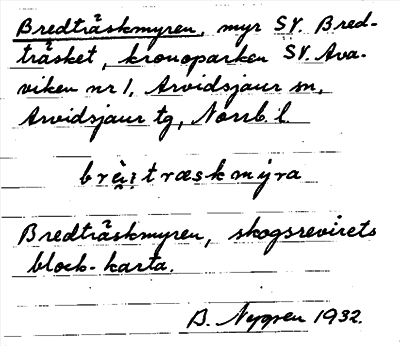 Bredträskmyren, myr SV. Bred-
träsket, kronoparken SV. Ava-
viken nr 1, Arvidsjaur sn,
Arvidsjaur tg, Norrb. l.
brèi̯træskmýra
Bredträskmyren, skogsrevirets
block-karta.
B. Nygren 1932.